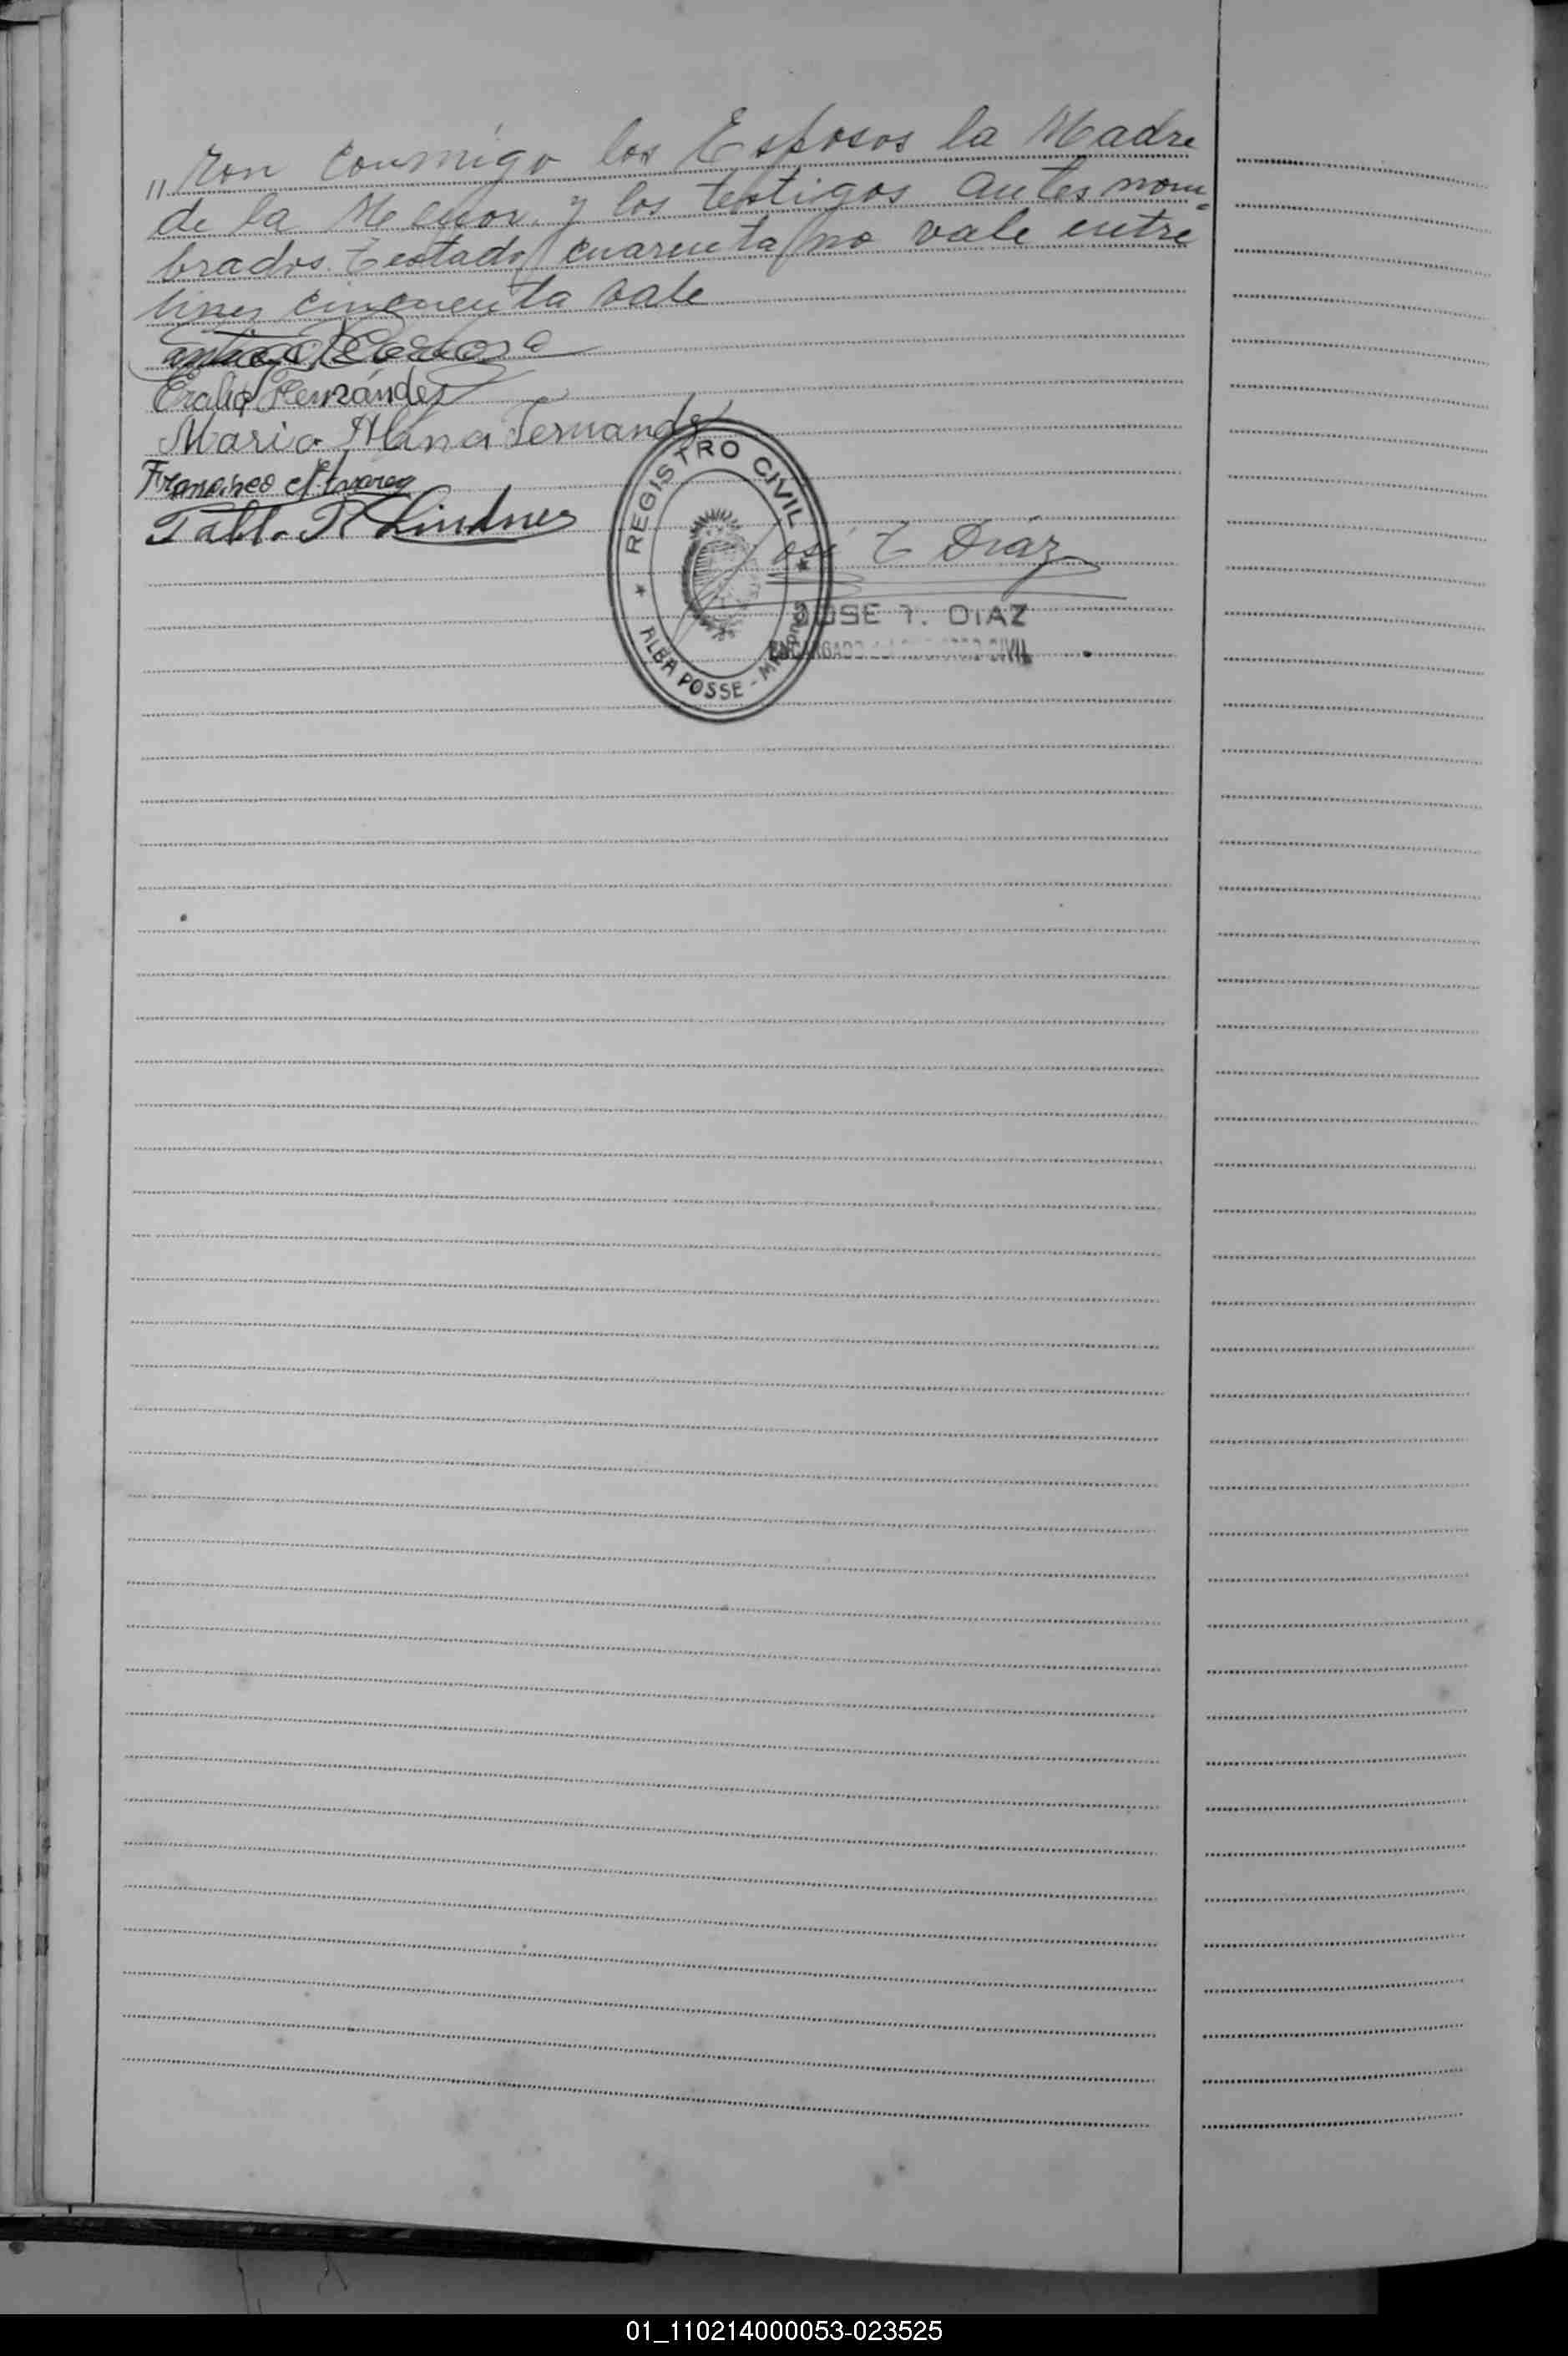 "ron conmigo los Esposos la Madre
de la Menor. y los testigos antes nom-
brados. Testado/cuarenta/no vale entre
lines cincuenta vale
Eralia Fernández
Maria Albina Fernandez
Francisco Alvarez
Pabl. R Lindner
REGISTRO CIVIL
ALBA POSSE -
José T Díaz
JOSE T. DIAZ
ENCARGADO REGISTRO CIVIL
01_110214000053-023525